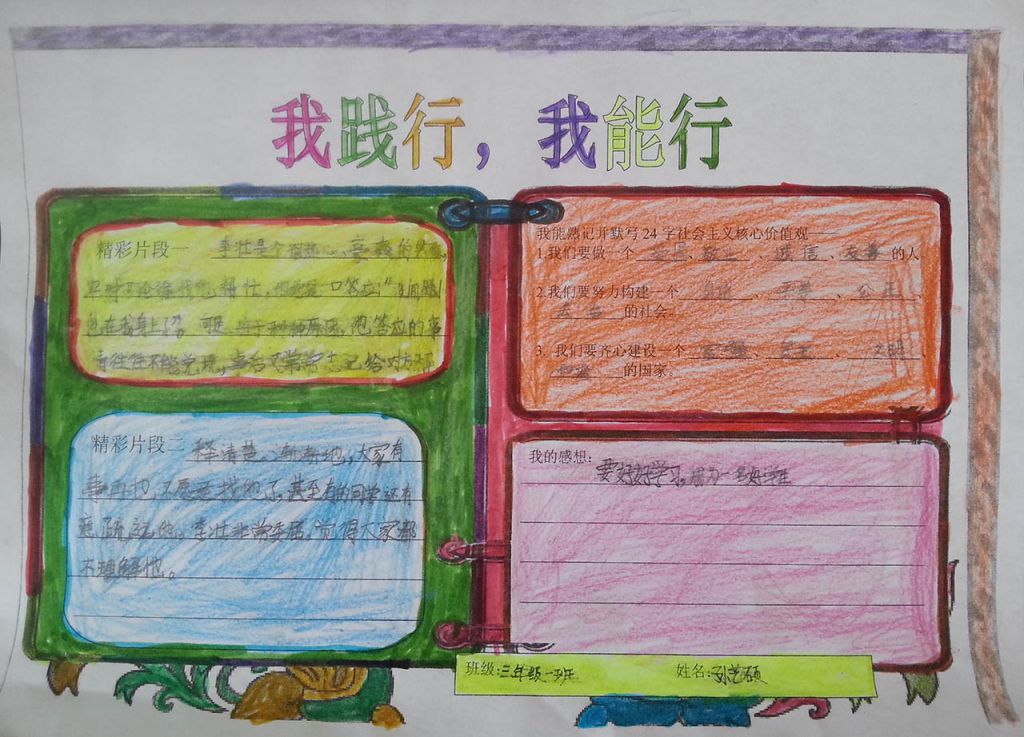 我践行，我能行
精彩片段一 李壮是个很热心、
平时不论谁找他帮忙，他都是一口答应："没问题！
包在我身上了。"可是 由于种种原因，他答应的事
情往往不能兑现，事后又常常忘记给对方
精彩片段二 释清楚。渐渐地，大家有
事再也不愿意找他了，甚至有的同学还有
意疏远他。李壮非常委屈，觉得大家都
不理解他。
我能熟记并默写24字社会主义核心价值观——
1.我们要做一个 爱国、敬业、诚信、友善 的人
2.我们要努力构建一个 自由、平等、公正、
法治 的社会。
3. 我们要齐心建设一个 富强、民主、文明、
和谐 的国家。
我的感想：
要好好学习，成为一名好学生
班级:三年级一班 姓名:孙艺硕